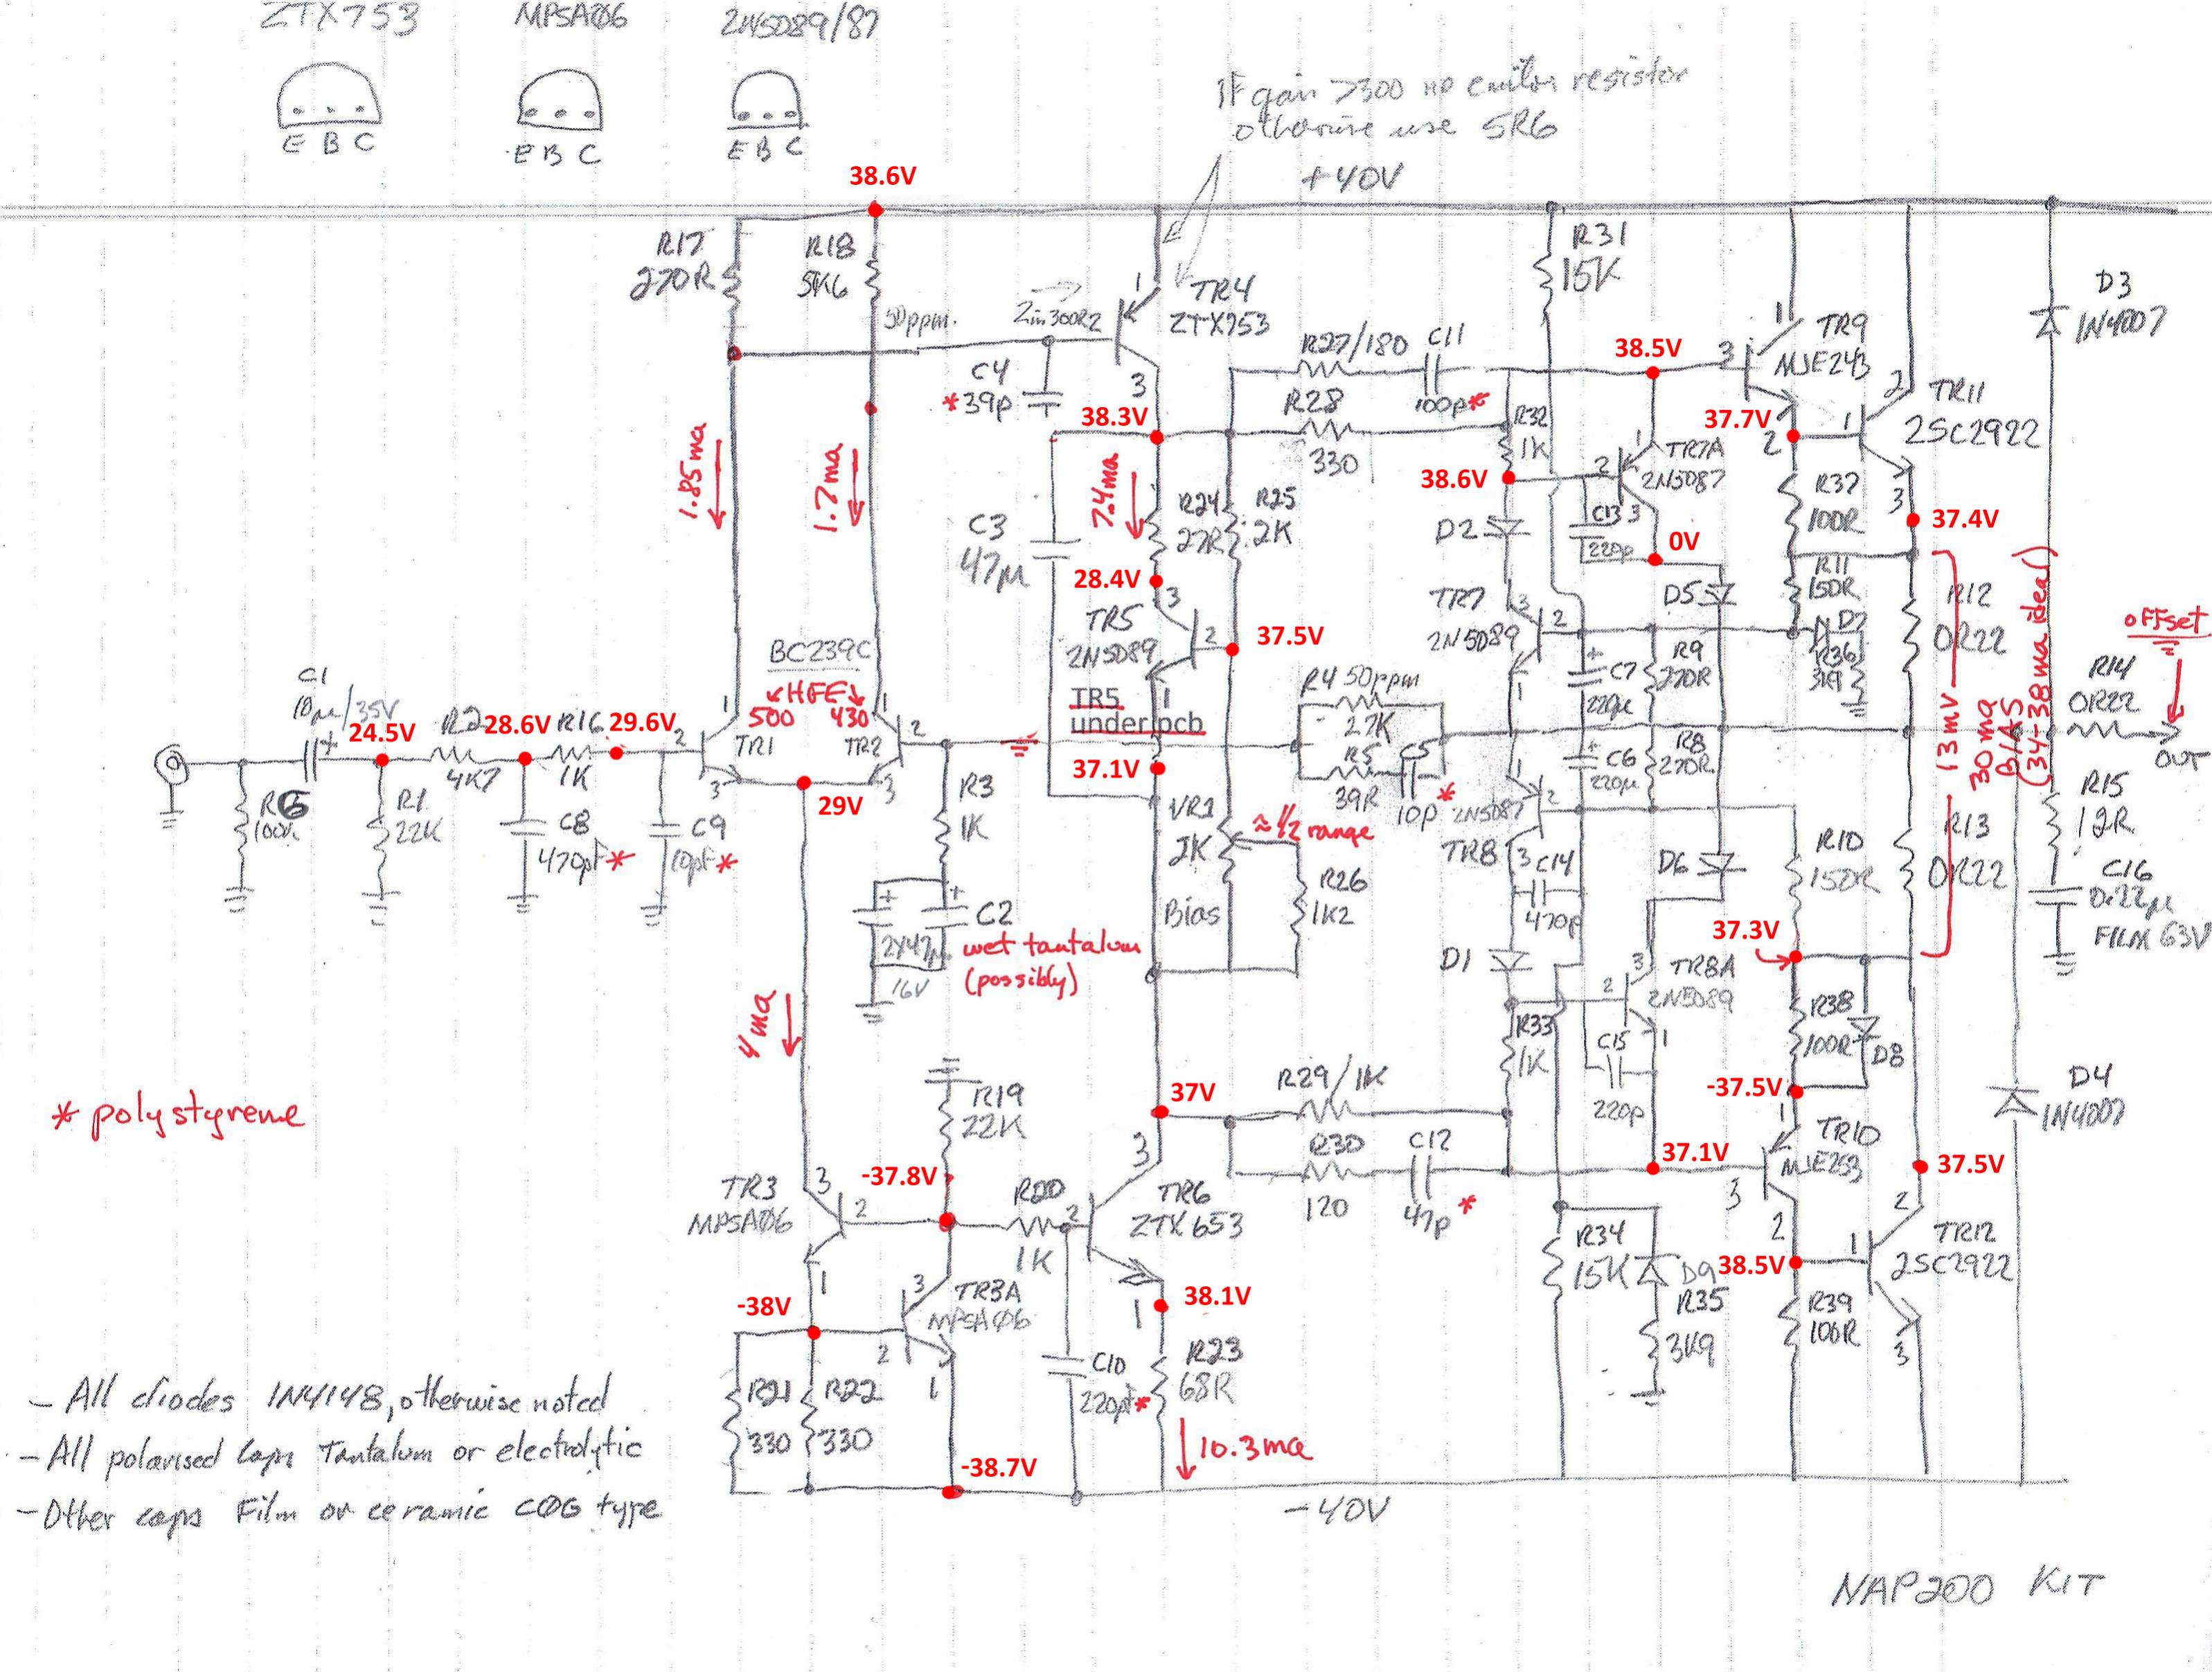 ZTX753
MPSA06
2N5089/87
E B C
E B C
E B C
IF gain >300 no emitter resistor
otherwise use 5R6
+40V
38.6V
R17
270R
R18
5K6
50ppm.
Zin 300R2
1
TR4
ZTX753
3
C4
*39p
38.3V
R27/180
C11
100p*
R28
330
R31
15K
38.5V
3
1
TR9
MJE243
37.7V
2
1
2
TR11
2SC2922
3
37.4V
D3
1N4007
R32
1K
38.6V
2
1
TR7A
2N5087
3
C13
220p
0V
D2
R37
100R
R11
150R
D5
D7
R36
3K9
R12
0R22
1.85ma
1.7ma
7.4ma
C3
47µ
R24
27R
R25
2K
28.4V
3
TR5
2N5089
2
1
37.5V
TR5
under pcb
37.1V
TR7
2N5089
3
2
1
C7
220µ
R9
270R
R4 50ppm
27K
R5
39R
C5
10p
*
C6
220µ
R8
270R
13mV
30ma
BIAS
(34-38ma ideal)
offset
R14
0R22
OUT
R15
12R
C16
0.22µ
FILM 63V
C1
10µ/35V
24.5V
R2
4K7
28.6V
R16
1K
29.6V
2
BC239C
HFE
500
430
1
1
TR1
TR2
2
3
3
29V
R6
100K
R1
22K
C8
470pF*
C9
10pF*
R3
1K
C2
2x47µ
16V
wet tantalum
(possibly)
VR1
2K
≈1/2 range
Bias
R26
1K2
1
2N5087
2
TR8
3
C14
470p
D1
D6
R10
150R
R13
0R22
37.3V
3
2
TR8A
2N5089
1
R38
100R
D8
R33
1K
C15
220p
-37.5V
4ma
* polystyrene
R19
22K
37V
R29/1K
R30
120
C12
47p
*
37.1V
1
TR10
MJE253
3
2
37.5V
D4
1N4007
TR3
MPSA06
3
2
1
-37.8V
R20
1K
3
2
TR6
ZTX653
1
38.1V
R34
15K
D9
R35
3K9
38.5V
1
2
TR12
2SC2922
3
R39
100R
-38V
3
TR3A
MPSA06
2
1
C10
220pF*
R23
68R
10.3ma
R21
330
R22
330
-38.7V
-40V
- All diodes 1N4148, otherwise noted
- All polarised caps Tantalum or electrolytic
- Other caps Film or ceramic C0G type
NAP200 KIT